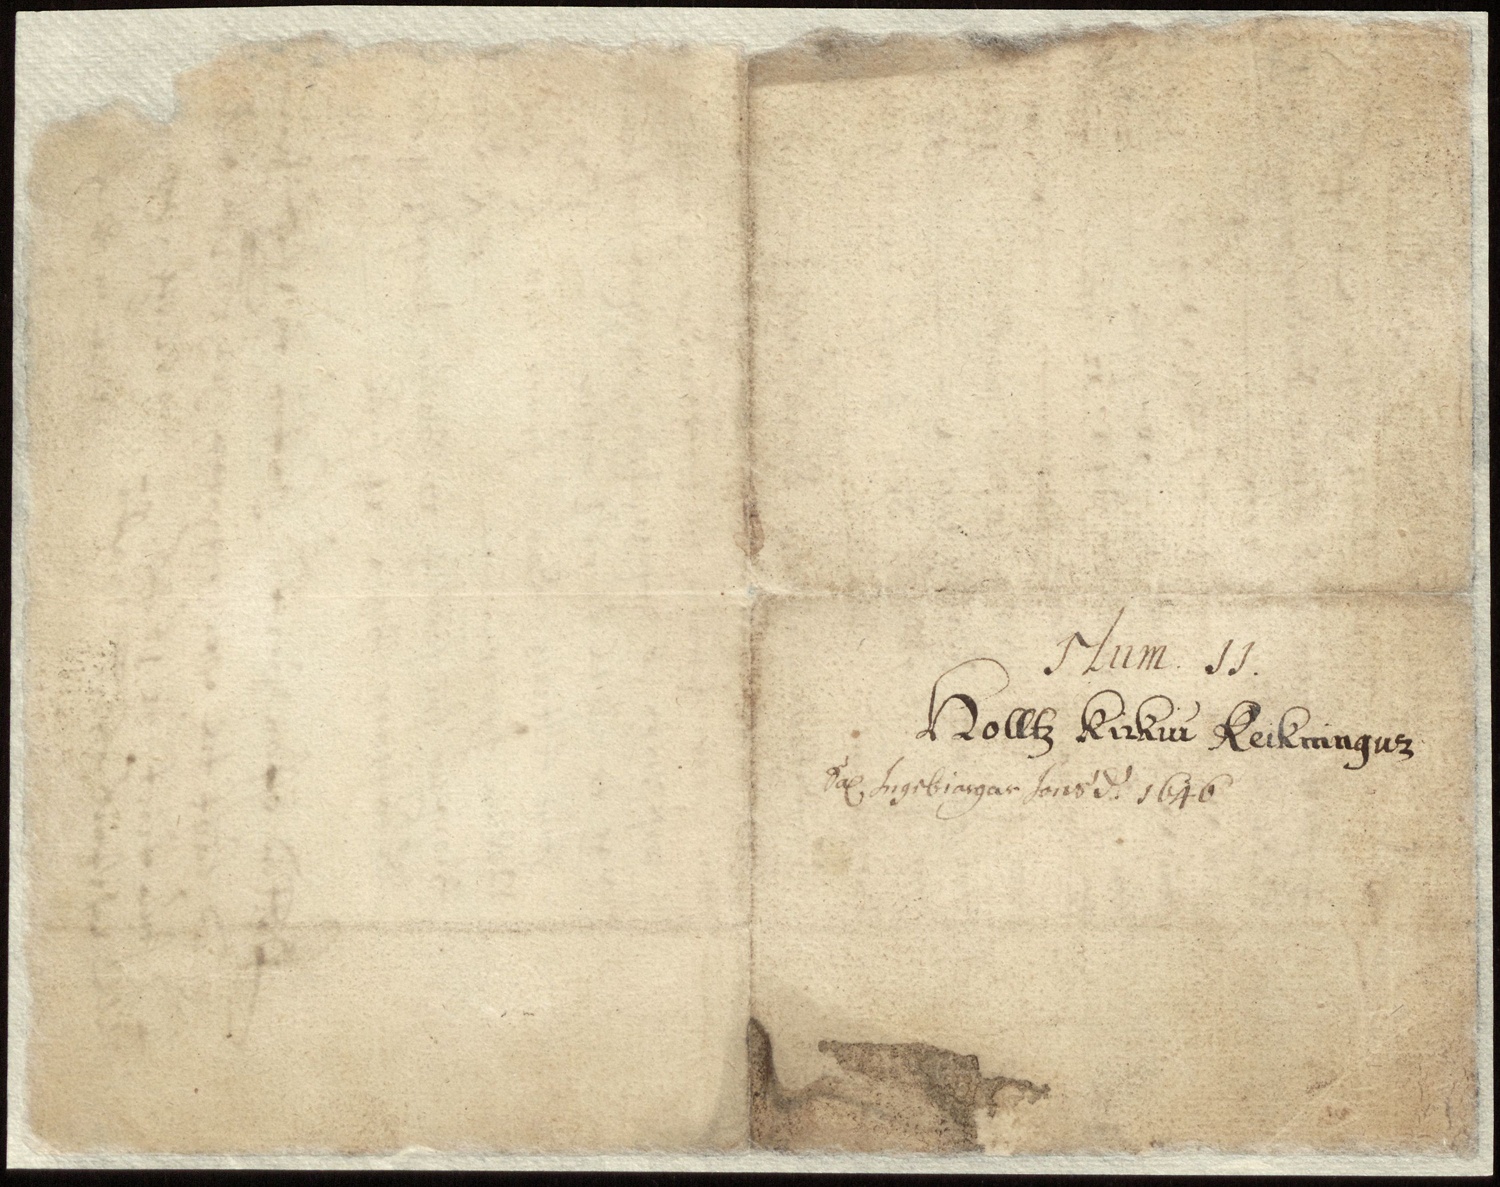 Num. 11.
Holltz kirkiu Reikningur
Sal. Ingebiargar Jons d. 1646